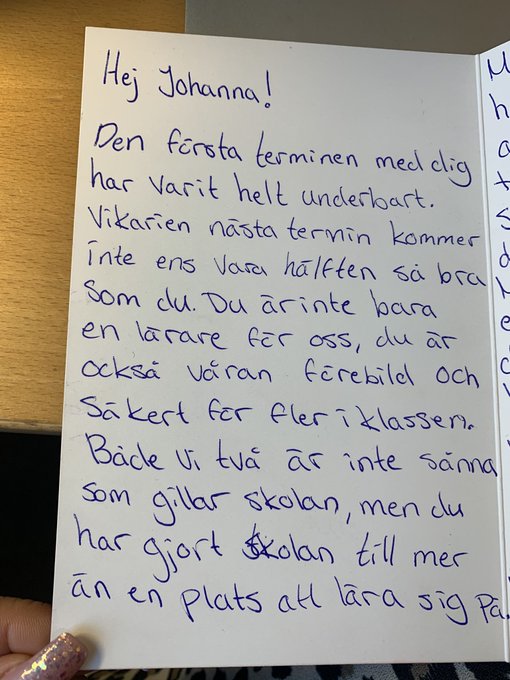 Hej Johanna!
Den första terminen med dig
har varit helt underbart.
Vikarien nästa termin kommer
inte ens vara hälften så bra
som du. Du är inte bara
en lärare för oss, du är
också våran förebild och
säkert för fler i klassen.
Både vi två är inte sånna
som gillar skolan, men du
har gjort skolan till mer
än en plats att lära sig på.